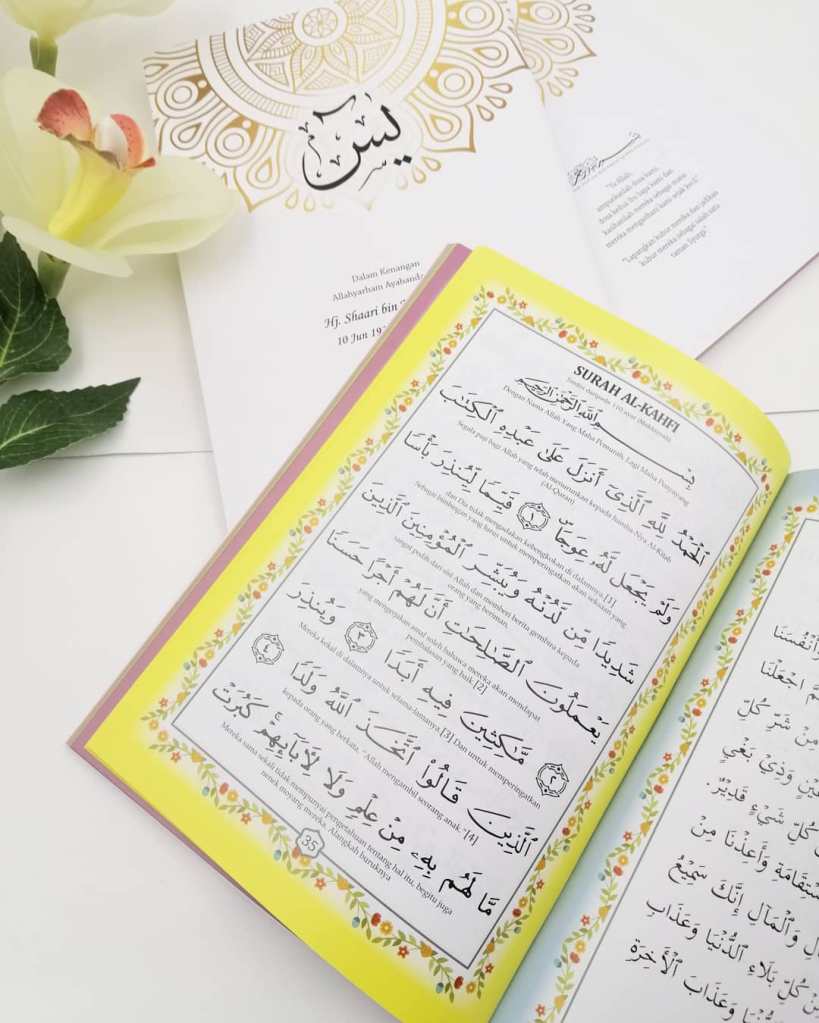 يس
Dalam Kenangan
Allahyarham Ayahanda
Hj. Shaari bin
10 Jun
"Ya Allah,
ampunkanlah dosa kami,
dosa kedua ibu bapa kami dan
kasihanilah mereka sebagai mana
mereka mengasihani kami sejak kecil."
"Lapangkan kubur mereka dan jadikan
kubur mereka sebagai salah satu
taman Syurga"
SURAH AL-KAHFI
Terdiri daripada 110 ayat (Makkiyyah)
بِسْمِ ٱللَّهِ ٱلرَّحْمَٰنِ ٱلرَّحِيمِ
Dengan Nama Allah Yang Maha Pemurah, Lagi Maha Penyayang
ٱلْحَمْدُ لِلَّهِ ٱلَّذِىٓ أَنزَلَ عَلَىٰ عَبْدِهِ ٱلْكِتَٰبَ
Segala puji bagi Allah yang telah menurunkan kepada hamba-Nya Al-Kitab
(Al-Quran)
وَلَمْ يَجْعَل لَّهُۥ عِوَجَاۜ ١ قَيِّمًا لِّيُنذِرَ بَأْسًا
dan Dia tidak mengadakan kebengkokan di dalamnya.[1]
Sebagai bimbingan yang lurus untuk memperingatkan akan seksaan yang
شَدِيدًا مِّن لَّدُنْهُ وَيُبَشِّرَ ٱلْمُؤْمِنِينَ ٱلَّذِينَ
sangat pedih dari sisi Allah dan memberi berita gembira kepada
orang yang beriman,
يَعْمَلُونَ ٱلصَّٰلِحَٰتِ أَنَّ لَهُمْ أَجْرًا حَسَنًا
yang mengerjakan amal soleh bahawa mereka akan mendapat
pembalasan yang baik.[2]
٢ مَّٰكِثِينَ فِيهِ أَبَدًا ٣ وَيُنذِرَ
Mereka kekal di dalamnya untuk selama-lamanya.[3] Dan untuk memperingatkan
ٱلَّذِينَ قَالُوا۟ ٱتَّخَذَ ٱللَّهُ وَلَدًا ٤
kepada orang yang berkata, "Allah mengambil seorang anak."[4]
مَّا لَهُم بِهِۦ مِنْ عِلْمٍ وَلَا لِءَابَآئِهِمْ ۚ كَبُرَتْ
Mereka sama sekali tidak mempunyai pengetahuan tentang hal itu, begitu juga
nenek moyang mereka. Alangkah buruknya
35
وَأَنْفُسَنَا
اجْعَلْنَا
مِنْ شَرِّ كُلِّ
وَذِيْ بَغْيٍ
كُلِّ شَيْءٍ قَدِيْرٌ.
وَأَعِذْنَا مِنْ
وَالْمَآلِ إِنَّكَ سَمِيْعُ
مِنْ كُلِّ بَلَاءِ الدُّنْيَا وَعَذَابِ
وَعَذَابَ الْأَخِرَةِ